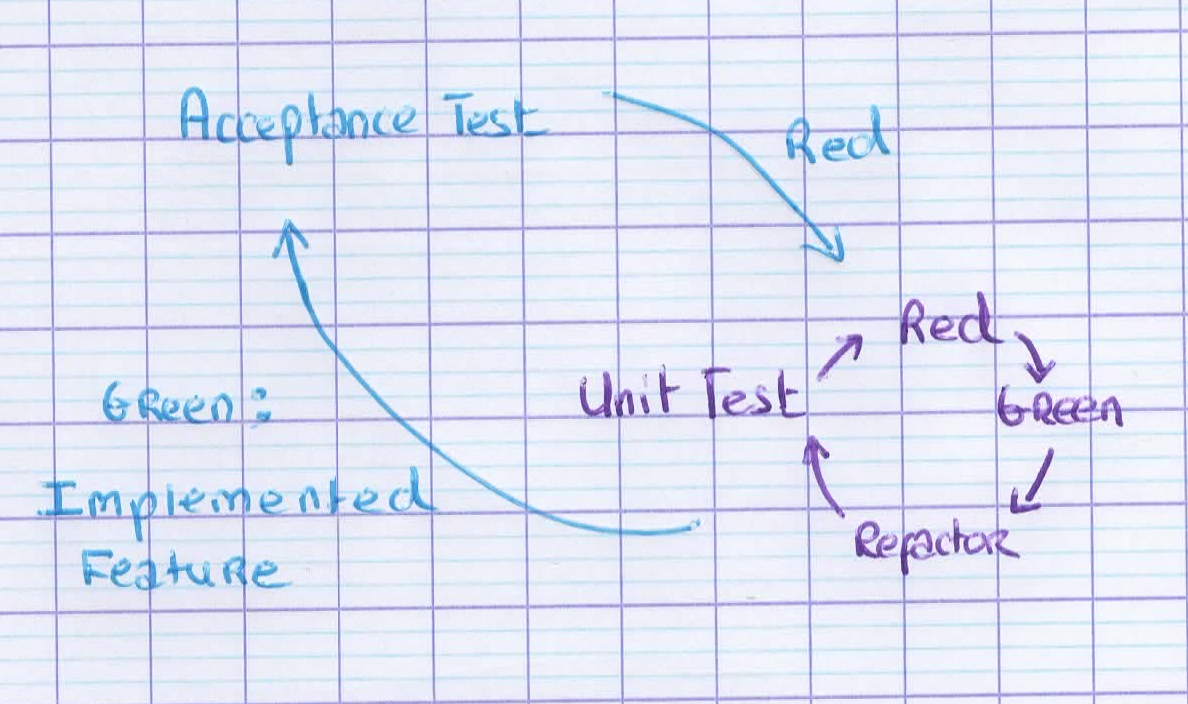 Acceptance Test
Red
Red
Unit Test
Green
Refactor
Green:
Implemented
Feature